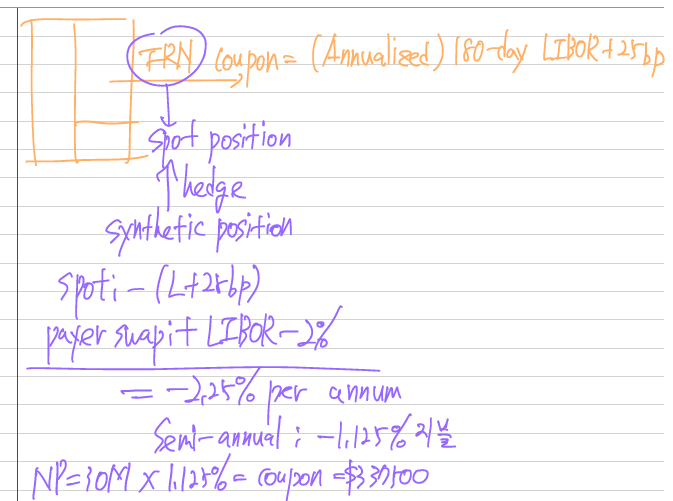 FRN coupon = (Annualized) 180-day LIBOR + 25bp
spot position
↑ hedge
synthetic position
spot: - (L+25bp)
payer swap: + LIBOR - 2%
= -2.25% per annum
Semi-annual : -1.125%
NP = 30M × 1.125% = coupon = $337500